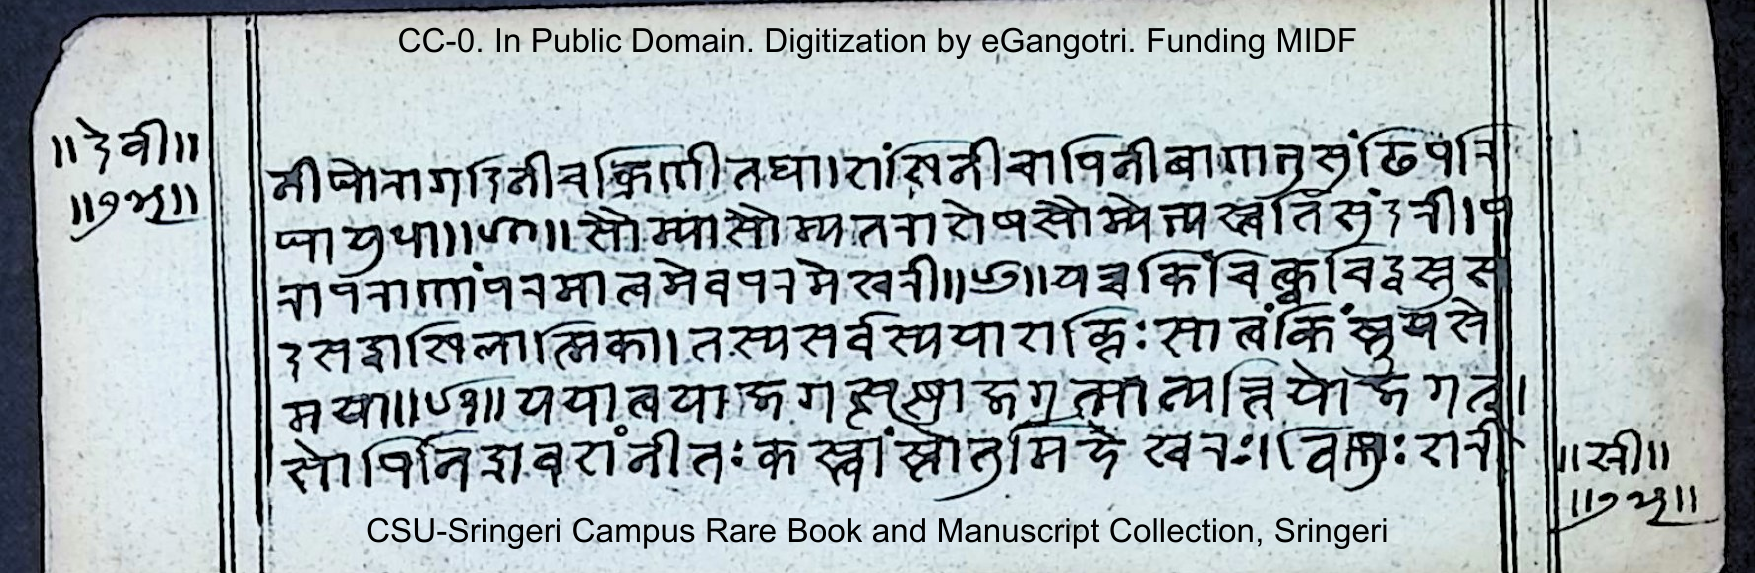 CC-0. In Public Domain. Digitization by eGangotri. Funding MIDF
॥देवी॥
॥७५॥
नीघोरागदिनीचक्रिणीतथा।शंखिनीचापिनीबाणाभुसुंढिपरि
घायुधा॥५०॥सौम्यासौम्यतराशेषसौम्येभ्यस्त्वतिसुंदरी।प
रापराणांपरमात्वमेवपरमेश्वरी॥५१॥यच्चकिंचित्क्वचिद्वस्तुस
दसद्वाखिलात्मिका।तस्यसर्वस्ययाशक्तिःसात्वंकिंस्तुयसे
मया॥५२॥ययात्वयाजगत्स्रष्टाजगत्पात्यत्तियोजगत्।
सोपिनिद्रावशंनीतःकस्त्वांस्तोतुमिहेश्वरः।विष्णुःशरी
॥स्त्री॥
॥७५॥
CSU-Sringeri Campus Rare Book and Manuscript Collection, Sringeri